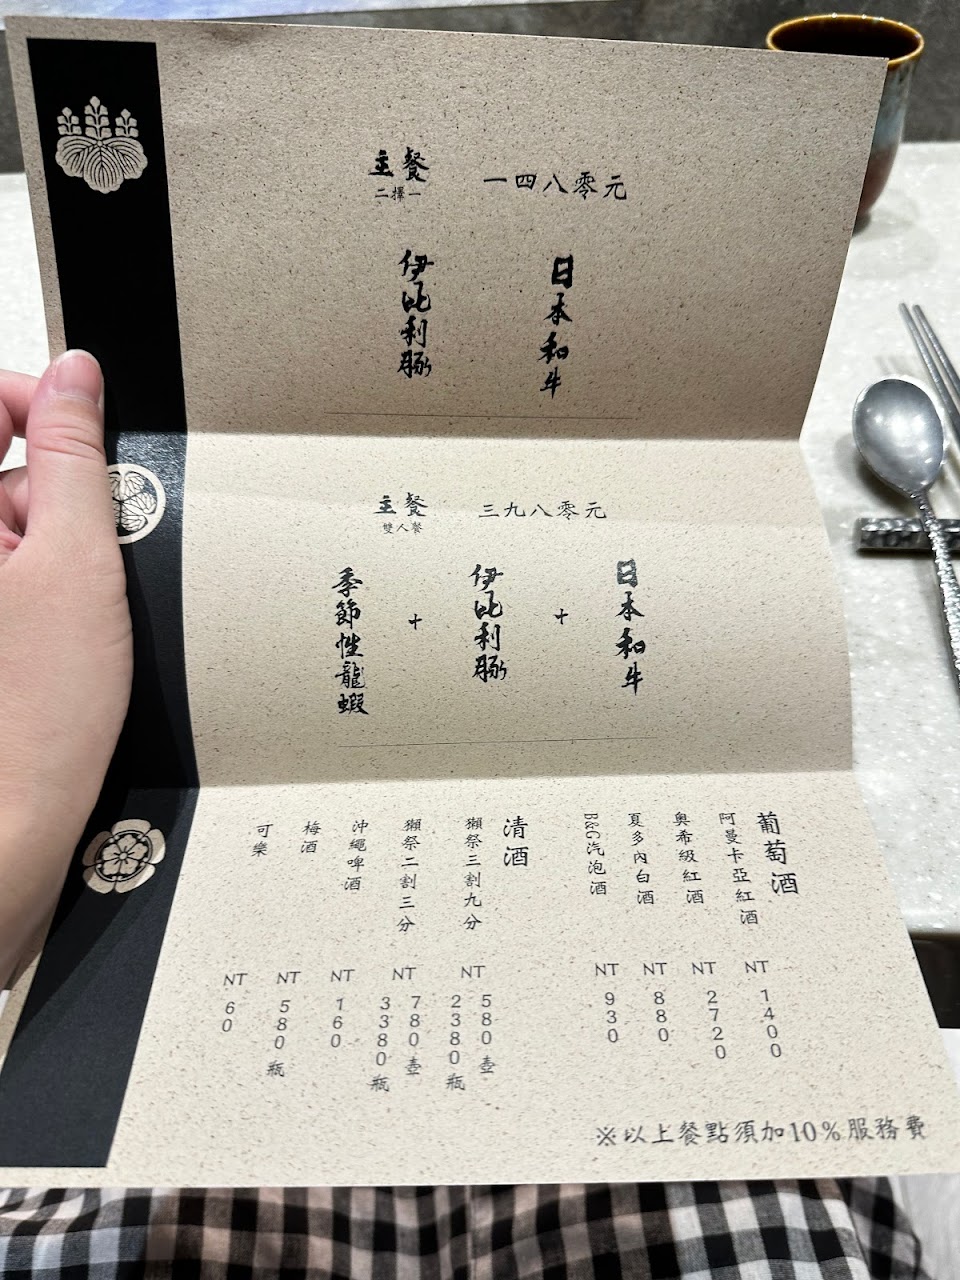 主餐
二擇一
一四八零元
日本和牛
伊比利豚
主餐
雙人餐
三九八零元
日本和牛
+
伊比利豚
+
季節性龍蝦
葡萄酒
阿曼卡亞紅酒
NT 1400
奧希級紅酒
NT 2720
夏多內白酒
NT 880
B&G汽泡酒
NT 930
清酒
獺祭三割九分
NT 580壺
2380瓶
獺祭二割三分
NT 780壺
3380瓶
沖繩啤酒
NT 160
梅酒
NT 580瓶
可樂
NT 60
※以上餐點須加10%服務費